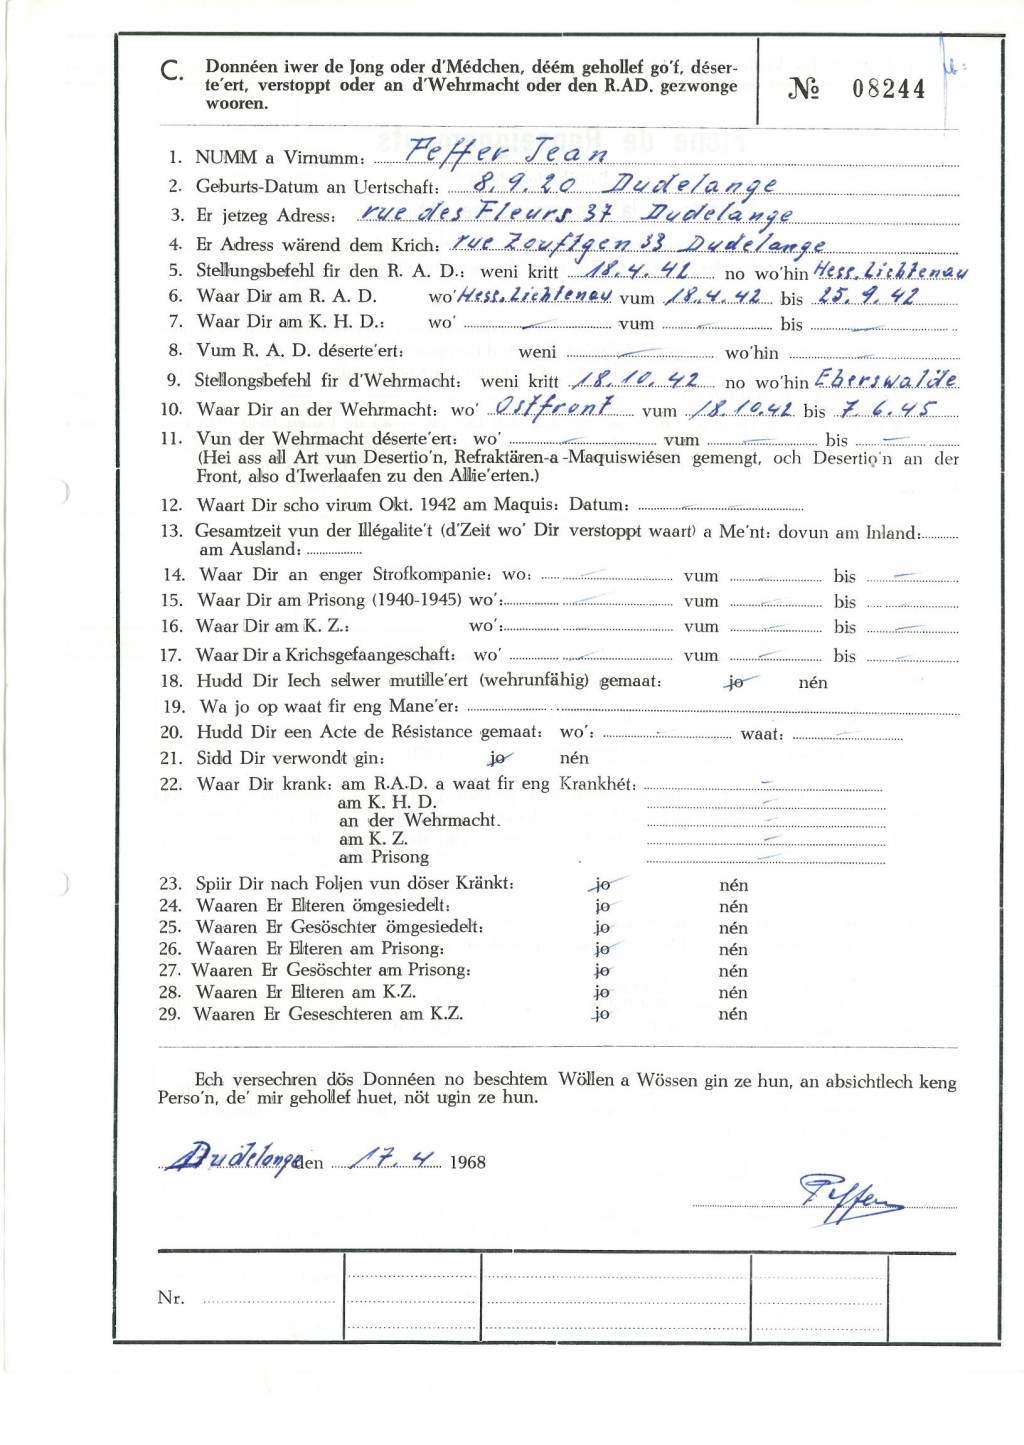 C. Donnéen iwer de Jong oder d'Médchen, déém gehollef go'f, déser-
te'ert, verstoppt oder an d'Wehrmacht oder den R.AD. gezwonge
wooren.
№ 08244
1. NUMM a Virnumm: Peffer Jean
2. Geburts-Datum an Uertschaft: 8.9.20 Dudelange
3. Er jetzeg Adress: rue des Fleurs 37 Dudelange
4. Er Adress wärend dem Krich: rue Zouftgen 33 Dudelange
5. Stellungsbefehl fir den R. A. D.: weni kritt 18.4.42 no wo'hin Hess. Lichtenau
6. Waar Dir am R. A. D. wo' Hess. Lichtenau vum 18.4.42 bis 25.9.42
7. Waar Dir am K. H. D.: wo' — vum — bis —
8. Vum R. A. D. déserte'ert: weni — wo'hin —
9. Stellongsbefehl fir d'Wehrmacht: weni kritt 18.10.42 no wo'hin Eberswalde
10. Waar Dir an der Wehrmacht: wo' Ostfront vum 18.10.42 bis 7.6.45
11. Vun der Wehrmacht déserte'ert: wo' — vum — bis —
(Hei ass all Art vun Desertio'n, Refraktären-a-Maquiswiésen gemengt, och Desertio'n an der
Front, also d'Iwerlaafen zu den Allie'erten.)
12. Waart Dir scho virum Okt. 1942 am Maquis: Datum: —
13. Gesamtzeit vun der Illégalite't (d'Zeit wo' Dir verstoppt waart) a Me'nt: dovun am Inland:
am Ausland:
14. Waar Dir an enger Strofkompanie: wo: — vum — bis —
15. Waar Dir am Prisong (1940-1945) wo': — vum — bis —
16. Waar Dir am K. Z.: wo': — vum — bis —
17. Waar Dir a Krichsgefaangeschaft: wo' — vum — bis —
18. Hudd Dir Iech selwer mutille'ert (wehrunfähig) gemaat: jo nén
19. Wa jo op waat fir eng Mane'er:
20. Hudd Dir een Acte de Résistance gemaat: wo': — waat: —
21. Sidd Dir verwondt gin: jo nén
22. Waar Dir krank: am R.A.D. a waat fir eng Krankhét: —
am K. H. D. —
an der Wehrmacht. —
am K. Z. —
am Prisong —
23. Spiir Dir nach Foljen vun döser Kränkt: jo nén
24. Waaren Er Elteren ömgesiedelt: jo nén
25. Waaren Er Gesöschter ömgesiedelt: jo nén
26. Waaren Er Elteren am Prisong: jo nén
27. Waaren Er Gesöschter am Prisong: jo nén
28. Waaren Er Elteren am K.Z. jo nén
29. Waaren Er Geseschteren am K.Z. jo nén
Ech versechren dös Donnéen no beschtem Wöllen a Wössen gin ze hun, an absichtlech keng
Perso'n, de' mir gehollef huet, nöt ugin ze hun.
Dudelange den 17.4 1968
Peffer
Nr.